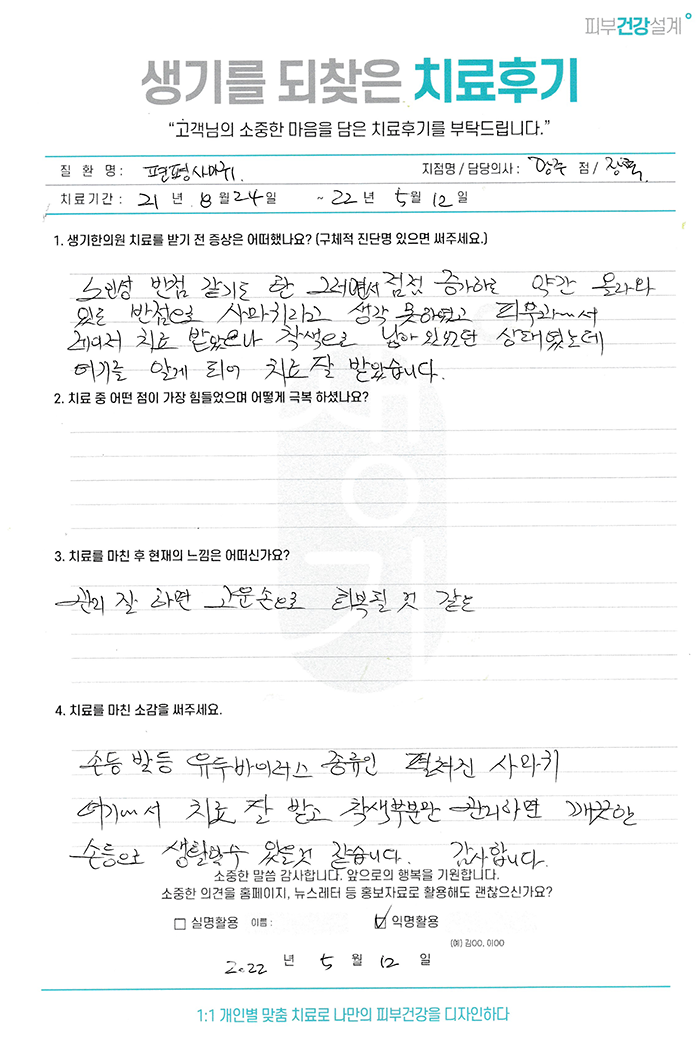 피부건강설계
생기를 되찾은 치료후기
“고객님의 소중한 마음을 담은 치료후기를 부탁드립니다.”
질 환 명 : 편평사마귀. 지점명 / 담당의사 : 광주 점 /
치료기간 : 21 년 8 월 24 일 ~ 22 년 5 월 12 일
1. 생기한의원 치료를 받기 전 증상은 어떠했나요? (구체적 진단명 있으면 써주세요.)
노인성 반점 같기도 한 그러면서 점점 증가하고 약간 올라와
있는 반점으로 사마귀라고 생각 못하였고 피부과에서
레이저 치료 받았으나 착색으로 남아 있었던 상태였는데
여기를 알게 되어 치료 잘 받았습니다.
2. 치료 중 어떤 점이 가장 힘들었으며 어떻게 극복 하셨나요?
3. 치료를 마친 후 현재의 느낌은 어떠신가요?
관리 잘 하면 고운손으로 회복될 것 같은
4. 치료를 마친 소감을 써주세요.
손등 발등 유두바이러스 종류인 펼쳐진 사마귀
여기에서 치료 잘 받고 착색부분만 관리하면 깨끗한
손등으로 생활할수 있을것 같습니다. 감사합니다.
소중한 말씀 감사합니다. 앞으로의 행복을 기원합니다.
소중한 의견을 홈페이지, 뉴스레터 등 홍보자료로 활용해도 괜찮으신가요?
실명활용 이름 : 익명활용
(예) 김OO, 이OO
2022 년 5 월 12 일
1:1 개인별 맞춤 치료로 나만의 피부건강을 디자인하다
생기